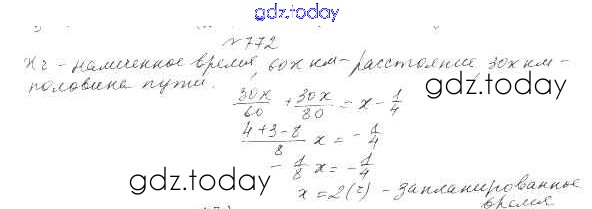 gdz.today
№772
х ч – намеченное время, 60х км – расстояние, 30х км –
половина пути.
30х/60 + 30х/80 = х – 1/4
gdz.today
(4+3–8)/8 х = –1/4
– 1/8 х = –1/4
gdz.today
х = 2 (ч) – запланированное
время